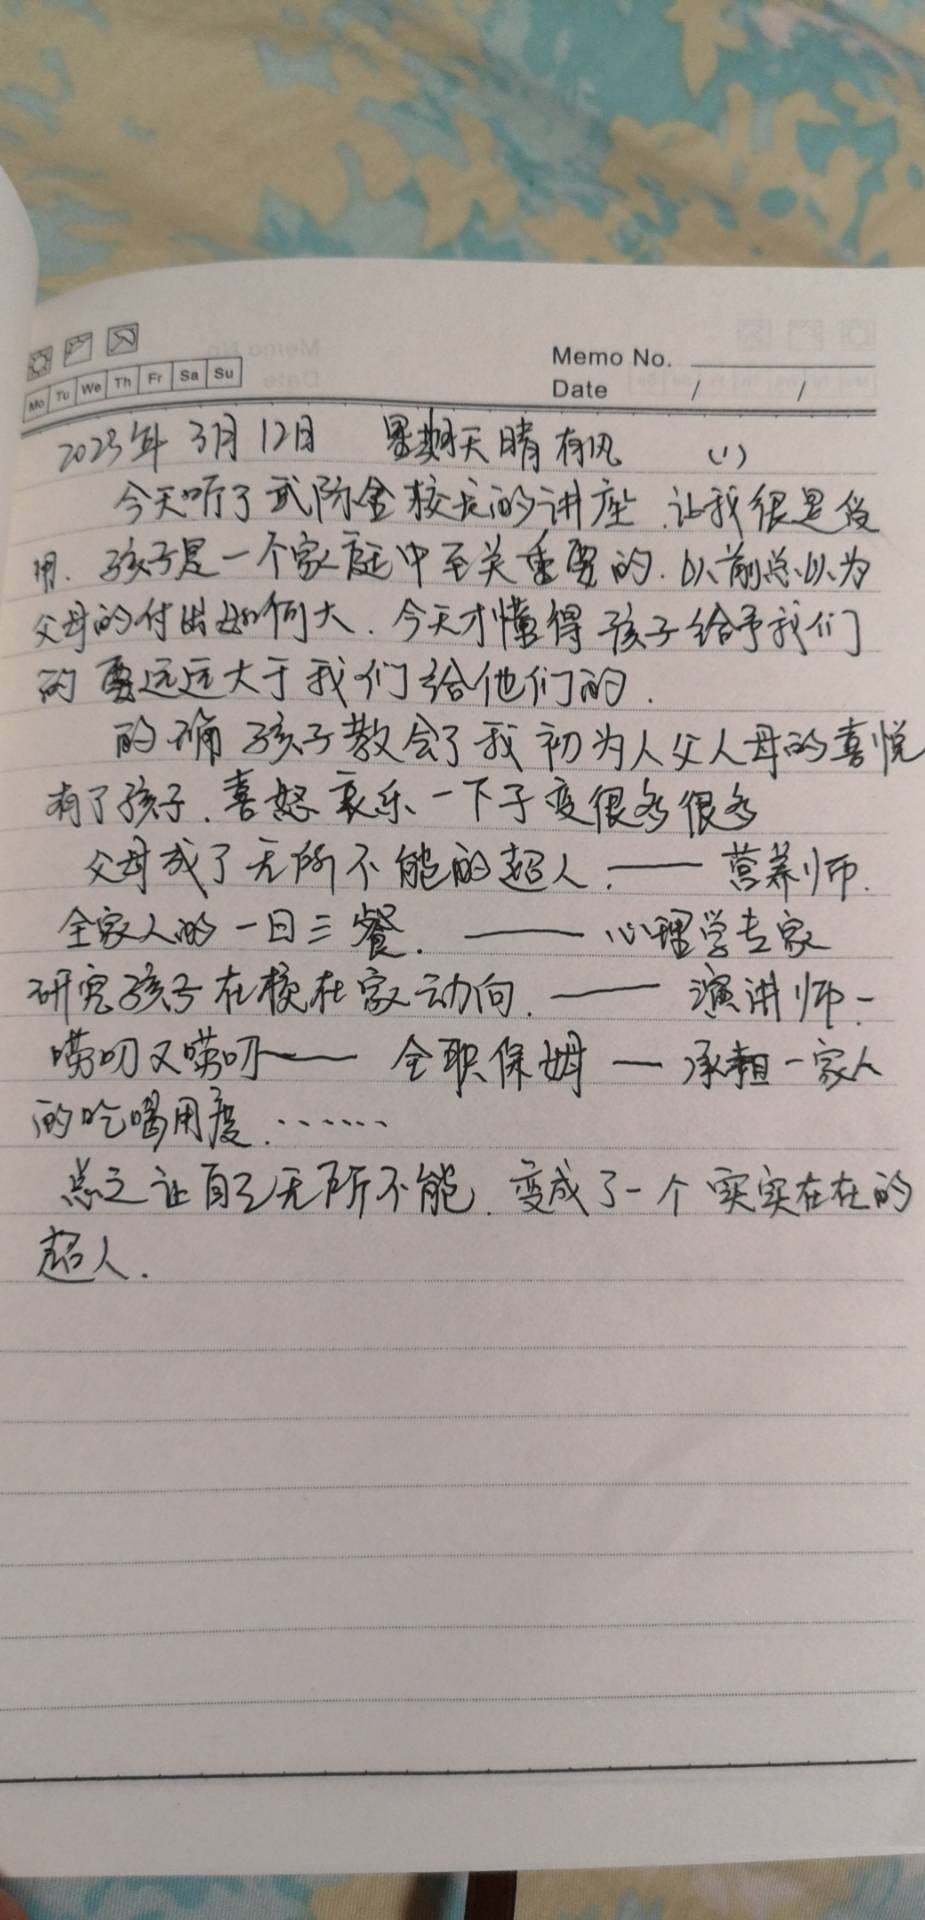 Mo Tu We Th Fr Sa Su
Memo No.
Date / /
2023年3月12日 星期天晴有风 (1)
今天听了武际金校长的讲座.让我很是受
用.孩子是一个家庭中至关重要的.以前总以为
父母的付出如何大.今天才懂得孩子给予我们
的要远远大于我们给他们的.
的确孩子教会了我初为人父人母的喜悦
有了孩子.喜怒哀乐一下子变很多很多
父母成了无所不能的超人.——营养师.
全家人的一日三餐.——心理学专家
研究孩子在校在家动向.——演讲师-
唠叨又唠叨——全职保姆—承担一家人
的吃喝用度.……
总之让自己无所不能.变成了一个实实在在的
超人.